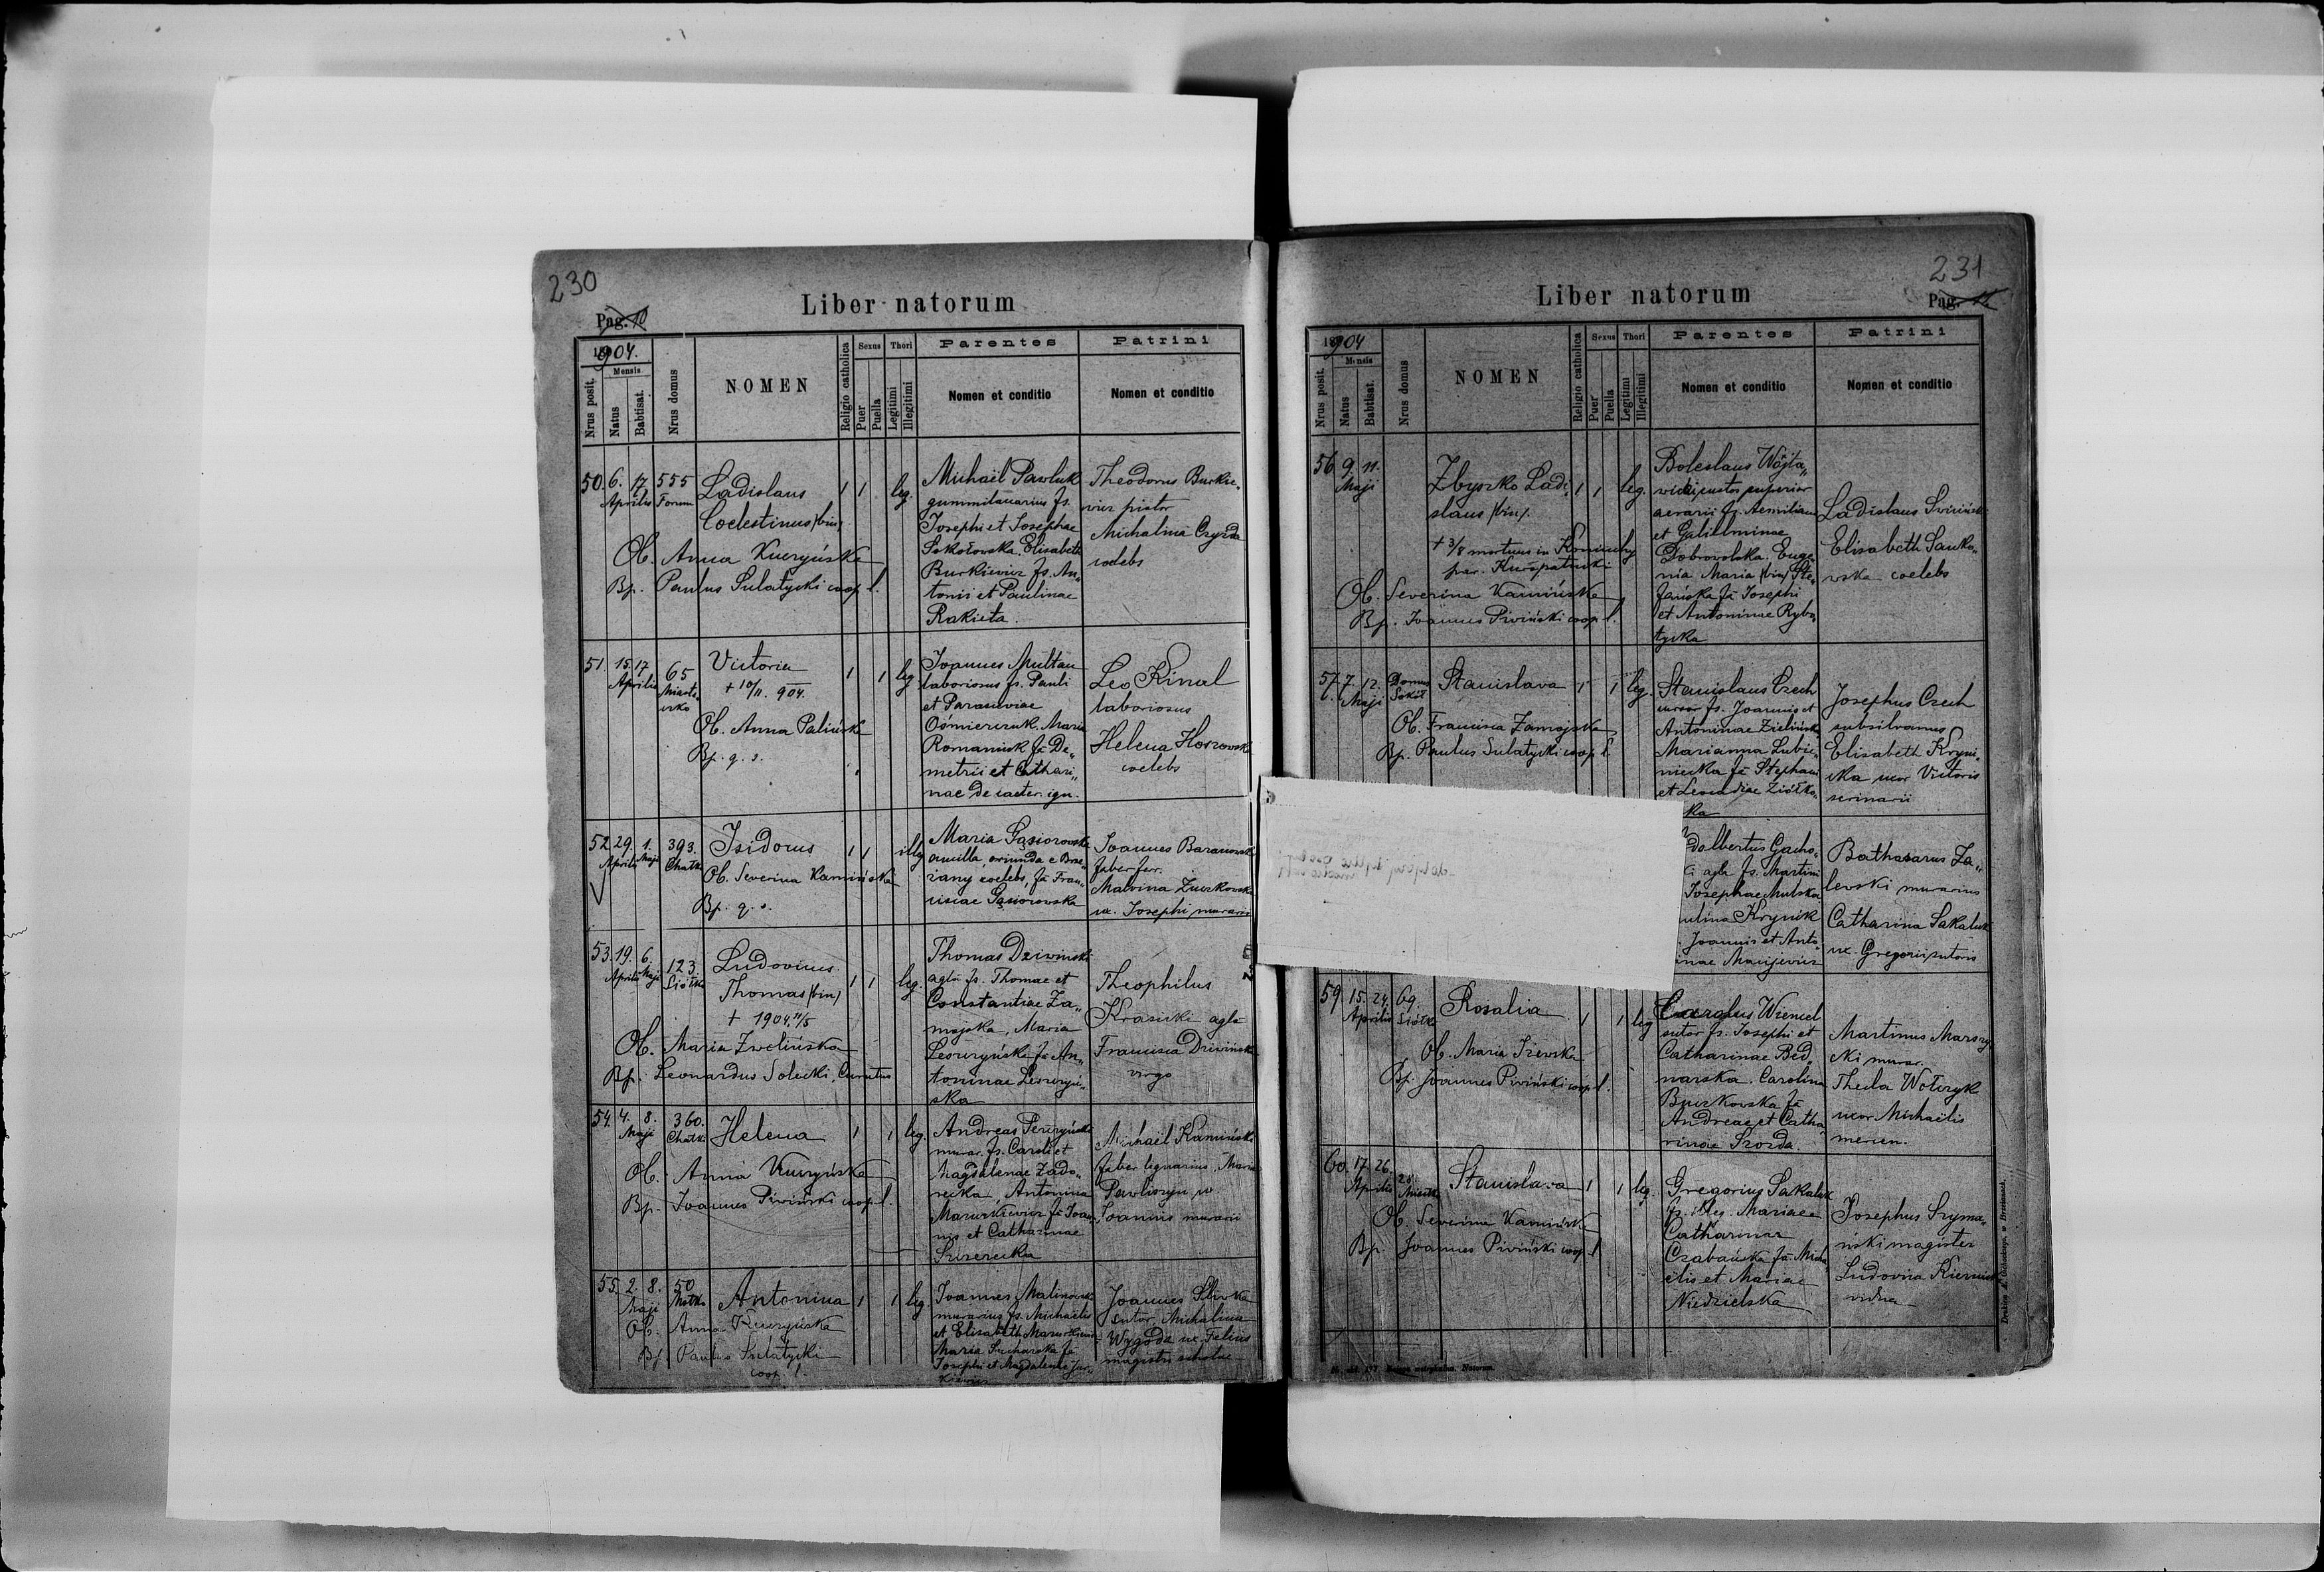 230
Pag. 10
Liber natorum
1904.
Mensis
Nrus posit.
Natus
Babtisat.
Nrus domus
NOMEN
Religio catholica
Sexus
Puer
Puella
Thori
Legitimi
Illegitimi
Parentes
Nomen et conditio
Patrini
Nomen et conditio
50. 6. 17. 555
Aprilis Forum
Ladislaus
Coelestinus /bin/
1 1 leg.
Ob. Anna Kuczyńska
Bp. Paulus Sulatycki coop. l.
Michaël Pawluk
fs.
Josephi et Josephae
Sokołowska, Elisabeth
Burkiewicz fs. An„
tonii et Paulinae
Rakieta.
Theodorus Burkie„
wicz pistor
Michalina Czyżda
coelebs
51. 15. 17. 65
Aprilis Miaste
czko
Victoria
+ 10/11. 904.
1 1 leg.
Ob. Anna Palińska
Bp. q. s.
Joannes Multan
laboriosus fs. Pauli
et Parasceviae
Maria
Romaniuk fa De„
metrii et Cathari„
nae de caeter. ign.
Leo Kinal
laboriosus
Helena Horzowska
coelebs
52. 29. 1. 393.
Aprilis Maji Chatki
Isidorus
1 1 illeg.
Ob. Severina Kamińska
Bp. q. s.
Maria Gąsiorowska
ancilla oriunda e Brze„
żany coelebs, fa Fran„
ciscae Gąsiorowska
Joannes Baranowski
faber fer.
Malvina Zuczkowska
ux. Josephi murarii
53. 19. 6. 123.
Aprilis Maji Siółko
Ludovicus
Thomas /bin/
+ 1904. 11/5
1 1 leg.
Ob. Maria Zwolińska
Bp. Leonardus Solecki, Curatus
Thomas Dziwiński
agla fs. Thomae et
Constantiae Za„
mojska, Maria
Leszczyńska fa An„
toninae Leszczyń„
ska
Theophilus
Krasicki agla
Francisca Dziwińska
virgo
54. 4. 8. 360.
Maji Chatki
Helena
1 1 leg.
Ob. Anna Kuczyńska
Bp. Joannes Piwiński coop. l.
Andreas
murar. fs. Caroli et
Magdalenae Zado„
recka, Antonina
Mazurkiewicz fa Joan„
nis et Catharinae
Michaël Kamiński
faber lignarius, Maria
Joannis murarii
55. 2. 8. 50
Maji
Antonina
1 1 leg.
Ob. Anna Kuczyńska
Bp. Paulus Sulatycki
coop. l.
Joannes Malinowski
murarius fs. Michaëlis
et Elisabeth Mazurkiewicz
Maria Sucharska fa
Josephi et Magdalenae Jur„
kiewicz
Joannes Śliwka
sutor, Michalina
Wygoda ux. Felicis
magistri scholae
231
Pag. 11
Liber natorum
1904
Mensis
Nrus posit.
Natus
Babtisat.
Nrus domus
NOMEN
Religio catholica
Sexus
Puer
Puella
Thori
Legitimi
Illegitimi
Parentes
Nomen et conditio
Patrini
Nomen et conditio
56. 9. 11.
Maji
Zbyszko Ladi„
slaus /bin/.
1 1 leg.
+ 3/8 mortuus in Koniuchy
par. Kuropatniki
Ob. Severina Kamińska
Bp. Joannes Piwiński coop. l.
Boleslaus Wójto„
wicz custos superior
aerarii fs. Aemiliani
et Guilelminae
Dobrovolska. Euge„
nia Maria /bin/ Ste„
fańska fa Josephi
et Antoninae Rybo„
tycka
Ladislaus
Elisabeth Sanko„
wska coelebs
57. 7. 12. Domus
Maji Sokół
Stanislava
1 1 leg.
Ob. Francisca Zamojska
Bp. Paulus Sulatycki coop. l.
Stanislaus Czech
cursor fs. Joannis et
Antoninae Zielińska
Marianna Lubie„
niecka fa Stephani
et Leocadiae Ziółko„
ska
Josephus Czech
subsilvanus
Elisabeth Kryni„
cka uxor Victoris
scrinarii
dalbertus Gacho„
i agla fs. Martini
Josephae Mulska
ulina Krynik
Joannis et Anto„
inae Maciejewicz
Bathasarus Za„
lewski murarius
Catharina Sakaluk
ux. Gregorii sutoris
59. 15. 24. 69.
Aprilis Siółko
Rosalia
1 1 leg.
Ob. Maria Szewska
Bp. Joannes Piwiński coop. l.
Carolus Wiencel
sutor fs. Josephi et
Catharinae Bed„
narska. Carolina
Burkowska fa
Andreae et Catha„
rinae Szozda.
Martinus Marszy„
cki murar.
Thecla Wołczyk
uxor Michaëlis
mercen.
60. 17. 26. 28.
Aprilis
Stanislava
1 1 leg.
Ob. Severina Kamińska
Bp. Joannes Piwiński coop. l.
Gregorius Sakaluk
fs. illeg. Mariae
Catharina
Czabańska fa Micha„
ëlis et Mariae
Niedzielska
Josephus Szyma„
ński magister
Ludovica
vidua